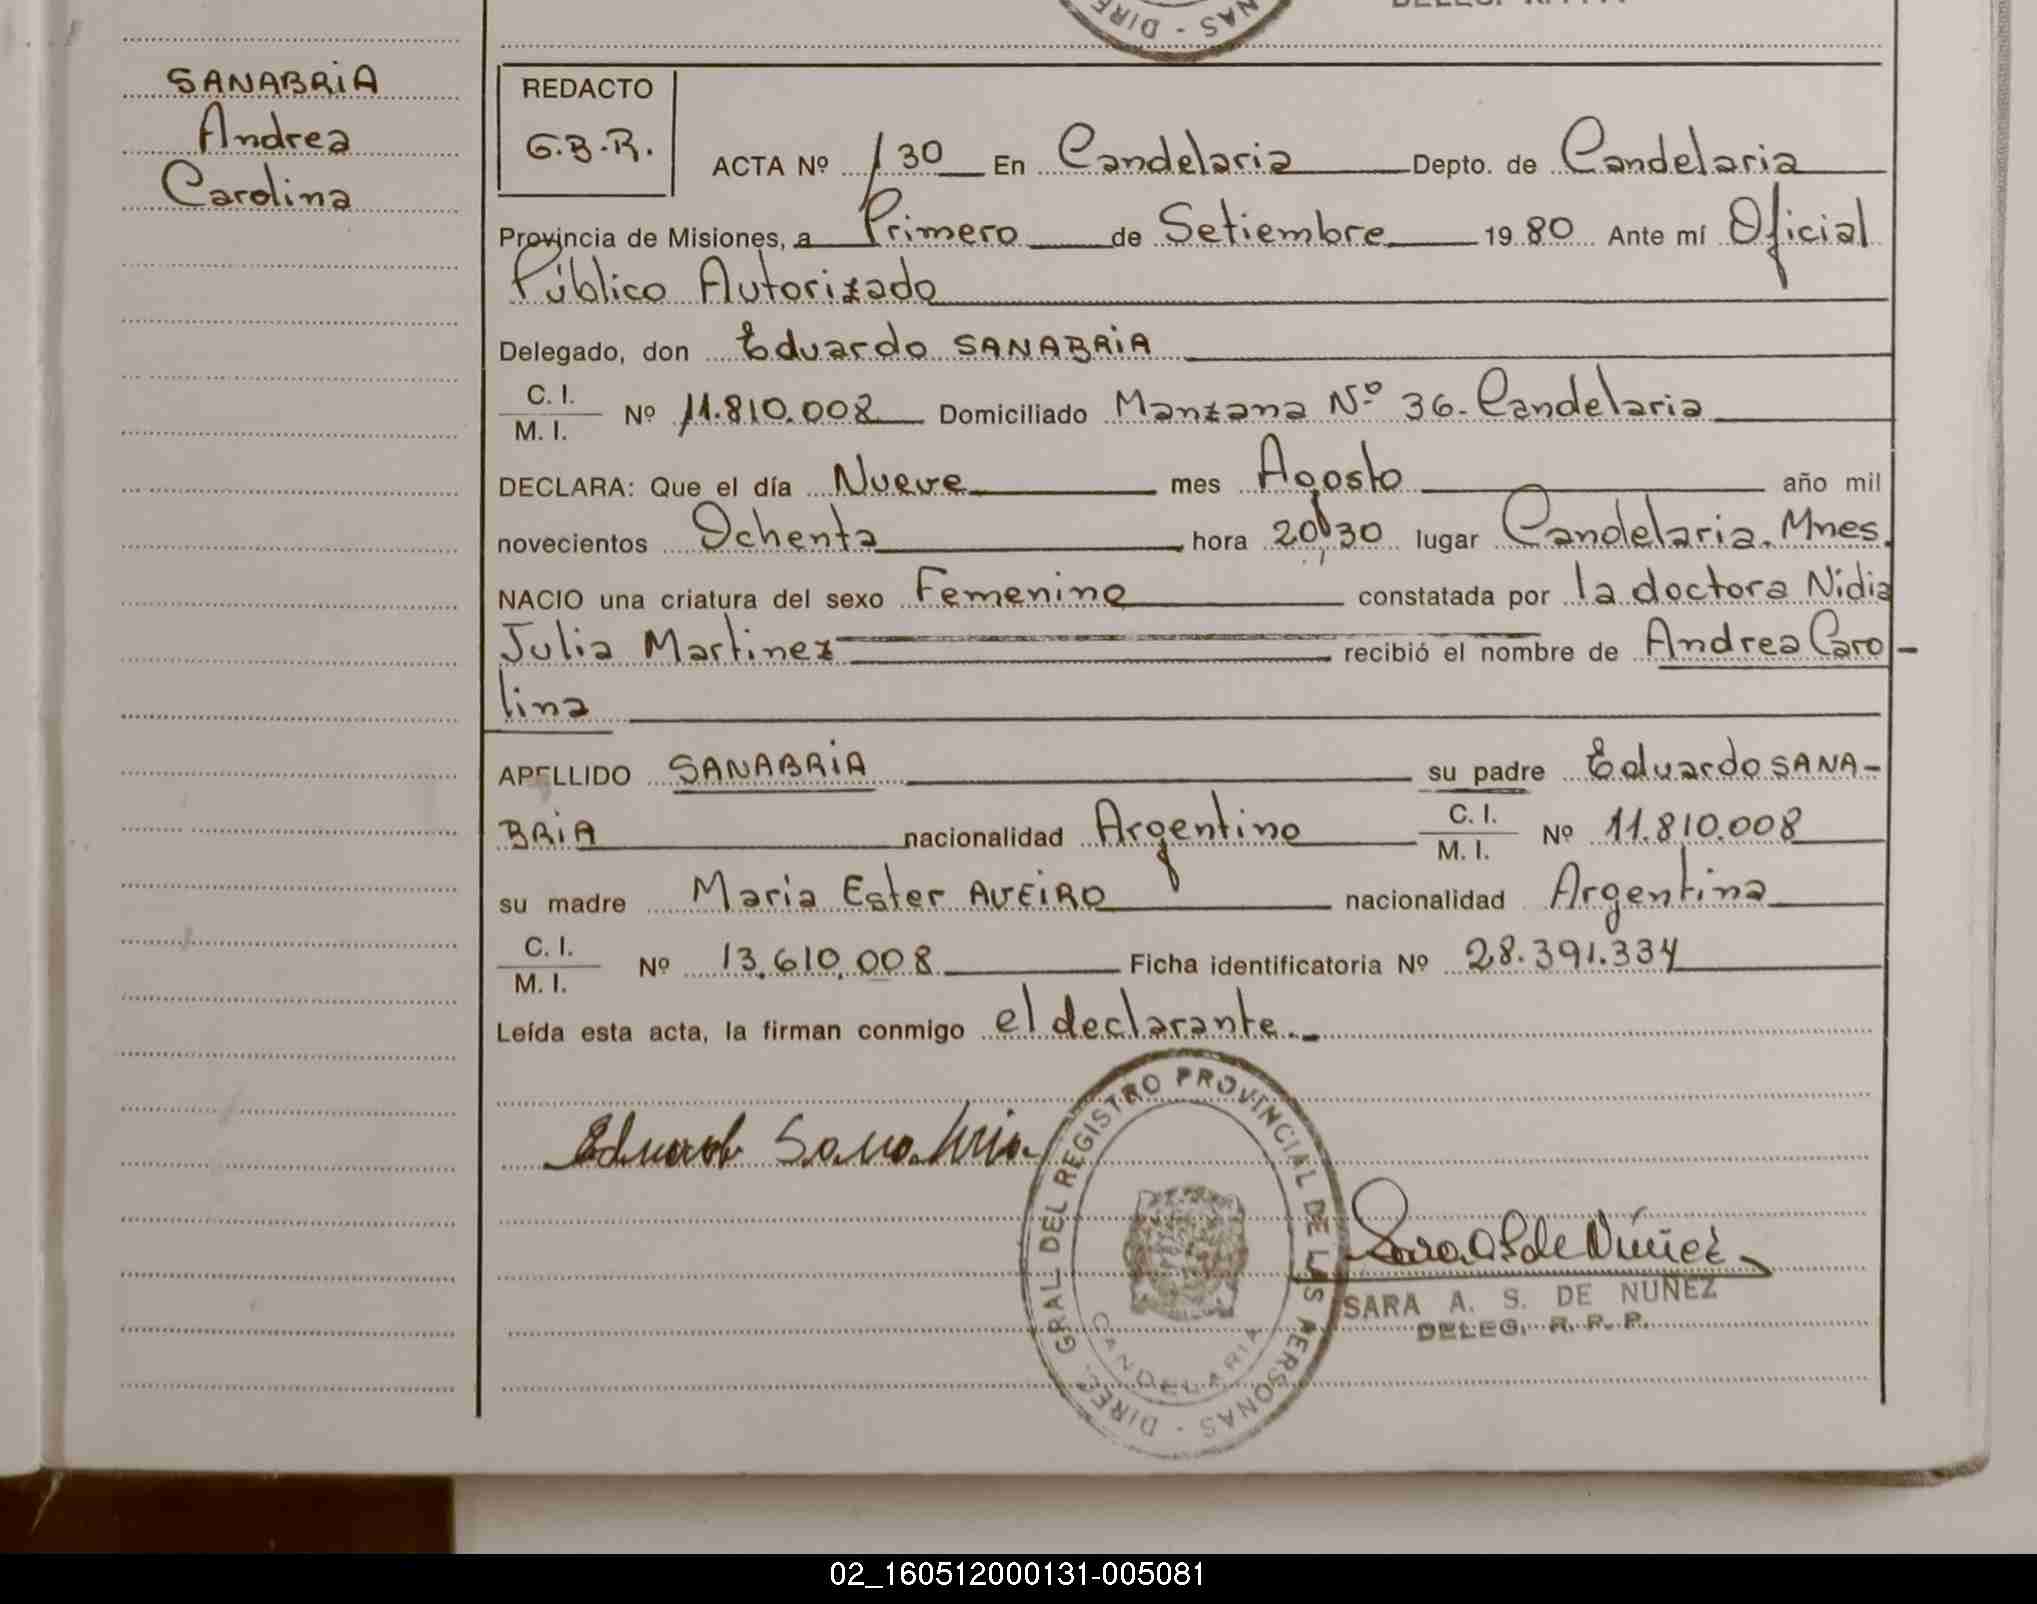 SANABRiA
Andrea
Carolina
REDACTO
G.B.R.
ACTA Nº 130 En Candelaria Depto. de Candelaria
Provincia de Misiones, a Primero de Setiembre 19 80 Ante mí Oficial
Público Autorizado
Delegado, don Eduardo SANABRiA
C. I.
M. I. Nº 11.810.008 Domiciliado Manzana Nº 36. Candelaria
DECLARA: Que el día Nueve mes Agosto año mil
novecientos Ochenta hora 20,30 lugar Candelaria. Mnes.
NACIO una criatura del sexo Femenino constatada por la doctora Nidia
Julia Martinez recibió el nombre de Andrea Caro-
lina
APELLIDO SANABRiA su padre Eduardo SANA-
BRiA nacionalidad Argentino C. I. M. I. Nº 11.810.008
su madre Maria Ester AVEiRO nacionalidad Argentina
C. I.
M. I. Nº 13.610.008 Ficha identificatoria Nº 28.391.334
Leída esta acta, la firman conmigo el declarante.
Eduardo Sanabria
DIREC. GRAL DEL REGISTRO PROVINCIAL DE LAS PERSONAS
CANDELARIA
Sara A S de Núñez
SARA A. S. DE NUÑEZ
DELEG. R. R. P.
02_160512000131-005081